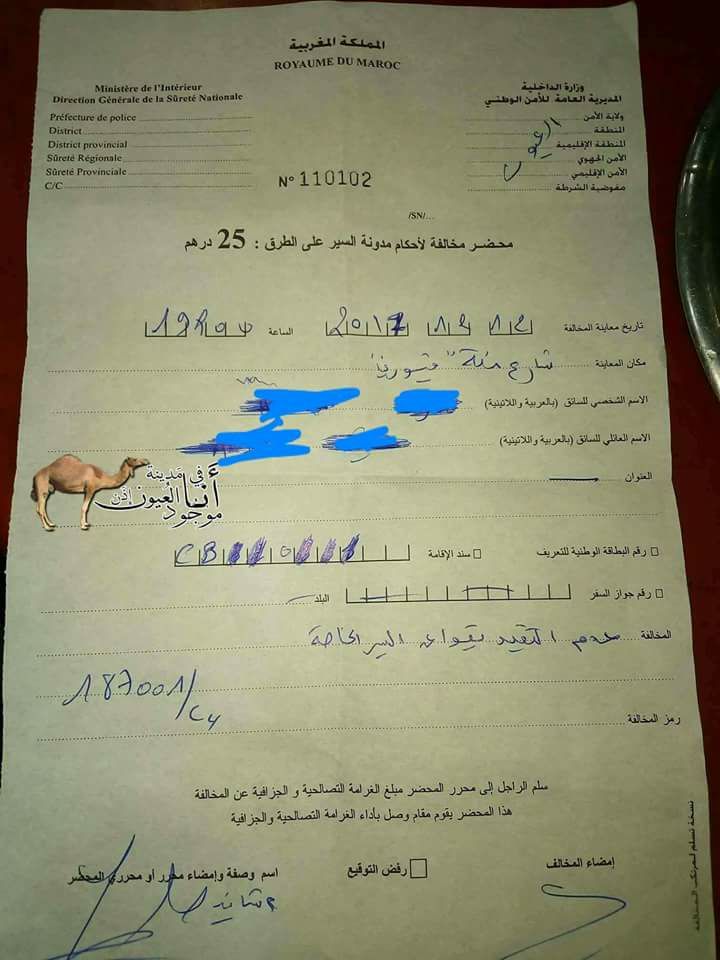 المملكة المغربية
ROYAUME DU MAROC
Ministère de l'Intérieur
Direction Générale de la Sûreté Nationale
Préfecture de police
District
District provincial
Sûreté Régionale
Sûreté Provinciale
C/C
وزارة الداخلية
المديرية العامة للأمن الوطني
ولاية الأمن
المنطقة
المنطقة الإقليمية
الأمن الجهوي
الأمن الإقليمي
مفوضية الشرطة
العيون
N° 110102
/SN/...
محضر مخالفة لأحكام مدونة السير على الطرق : 25 درهم
تاريخ معاينة المخالفة 12 12 2017 الساعة
مكان المعاينة شارع مكة
الاسم الشخصي للسائق (بالعربية واللاتينية)
الاسم العائلي للسائق (بالعربية واللاتينية)
العنوان
أنا في مدينة العيون إذن موجود
رقم البطاقة الوطنية للتعريف سند الإقامة CB
رقم جواز السفر البلد
المخالفة عدم التقيد بقواعد السير الخاصة
187001/C4
رمز المخالفة
سلم الراجل إلى محرر المحضر مبلغ الغرامة التصالحية و الجزافية عن المخالفة
هذا المحضر يقوم مقام وصل بأداء الغرامة التصالحية والجزافية
إمضاء المخالف
رفض التوقيع
اسم وصفة وإمضاء محرر أو محرري المحضر
نسخة تسلم لمرتكب المخالفة